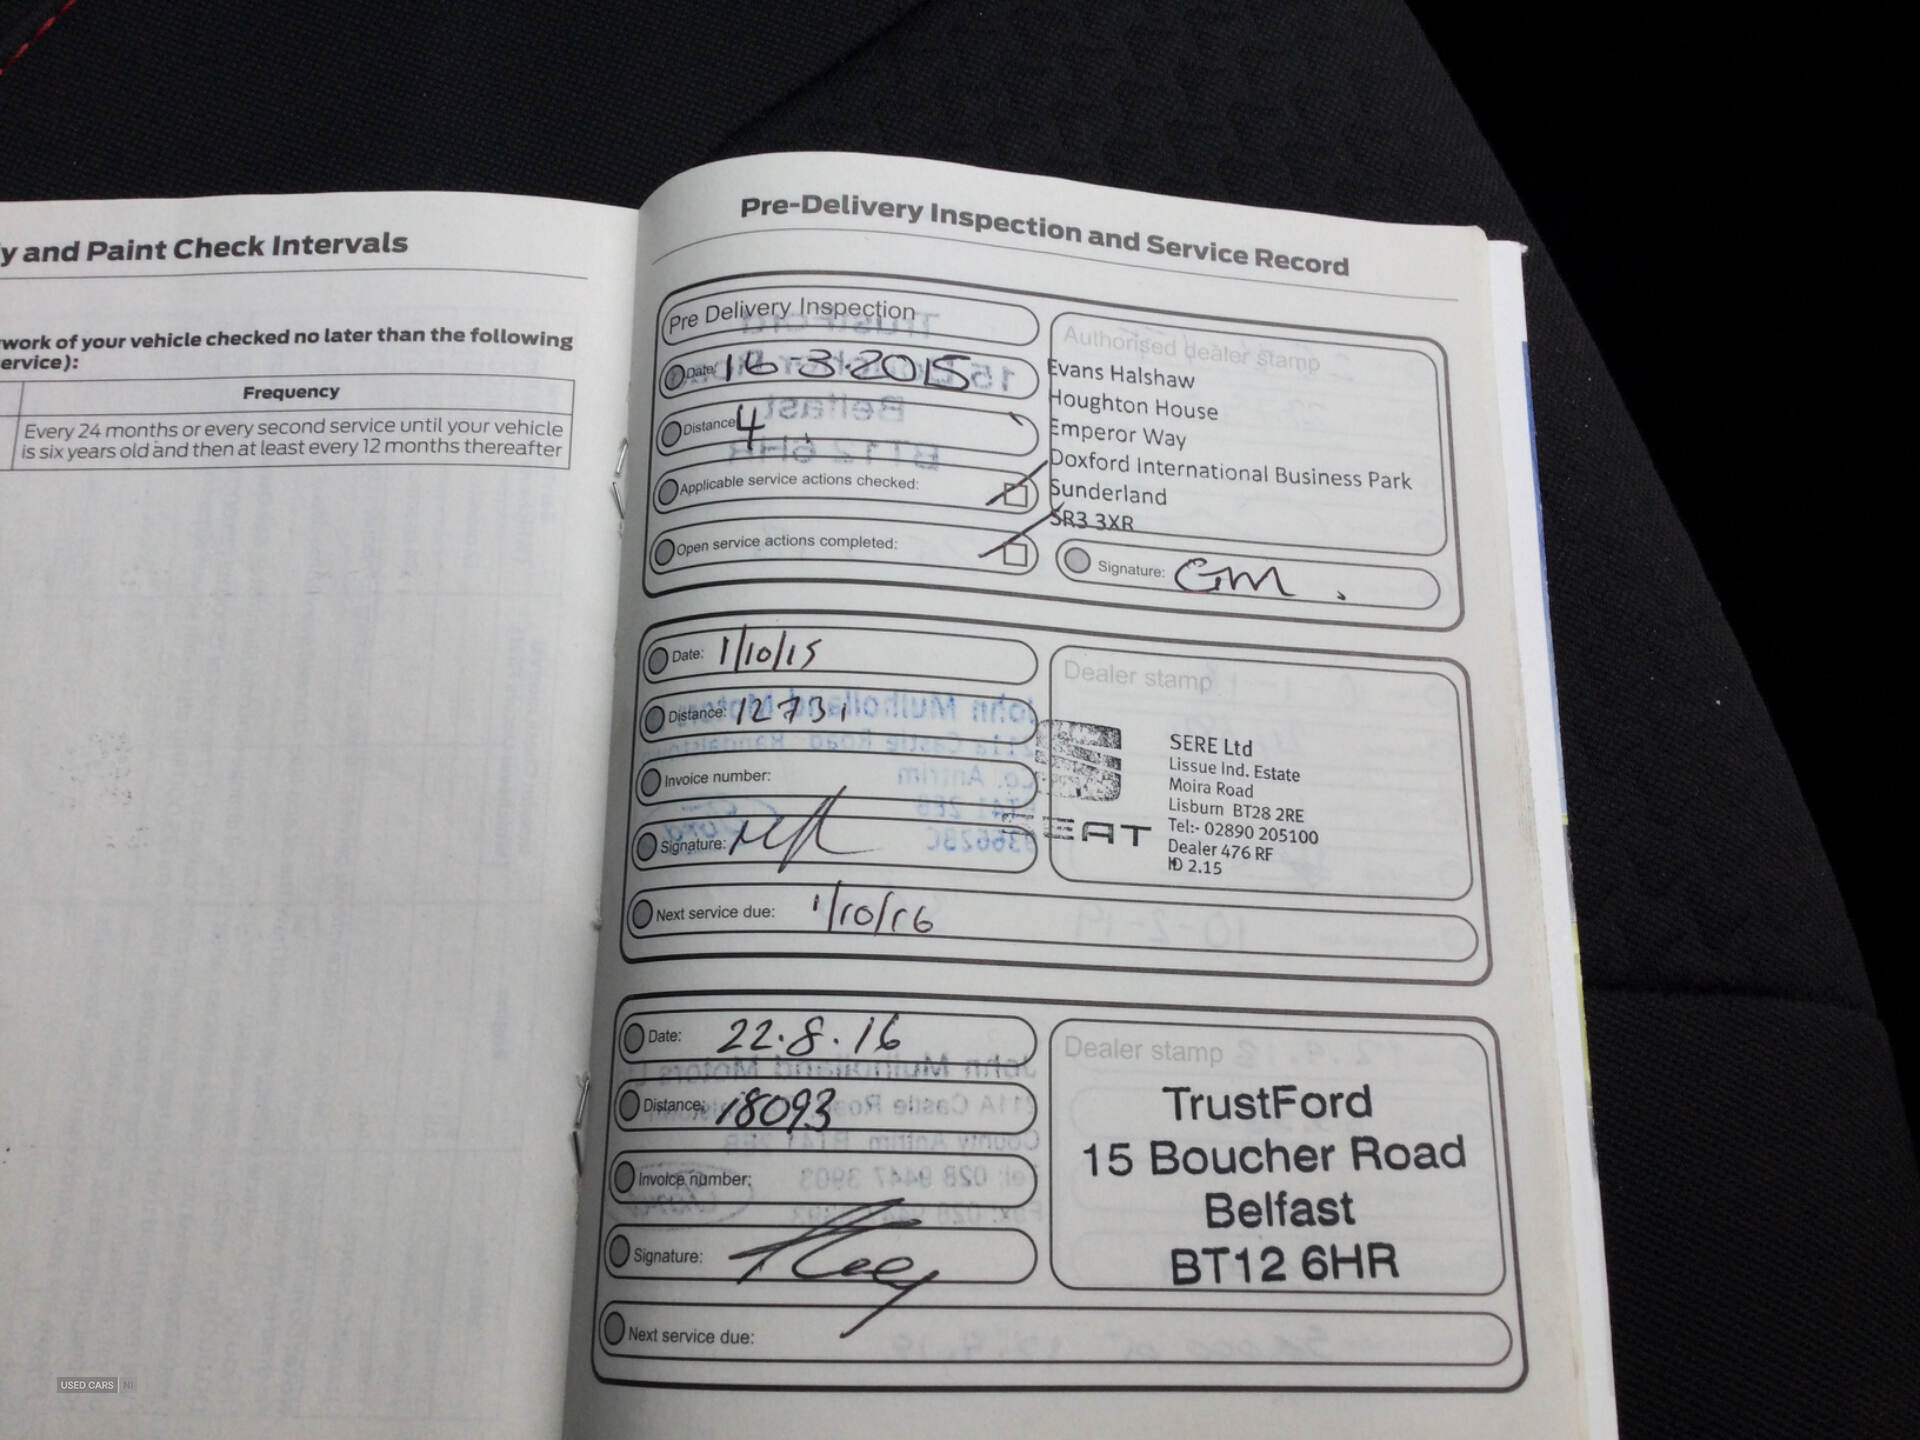 y and Paint Check Intervals
work of your vehicle checked no later than the following
ervice):
Frequency
Every 24 months or every second service until your vehicle
is six years old and then at least every 12 months thereafter
Pre-Delivery Inspection and Service Record
Pre Delivery Inspection
Date: 16-3-2015
Distance 4
Applicable service actions checked:
Open service actions completed:
Authorised dealer stamp
Evans Halshaw
Houghton House
Emperor Way
Doxford International Business Park
Sunderland
SR3 3XR
Signature: GM.
Date: 1/10/15
Distance: 12731
Invoice number:
Signature:
Next service due: 1/10/16
Dealer stamp
SEAT
SERE Ltd
Lissue Ind. Estate
Moira Road
Lisburn BT28 2RE
Tel:- 02890 205100
Dealer 476 RF
ID 2.15
Date: 22.8.16
Distance: 18093
Invoice number:
Signature:
Next service due:
Dealer stamp
TrustFord
15 Boucher Road
Belfast
BT12 6HR
USED CARS NI